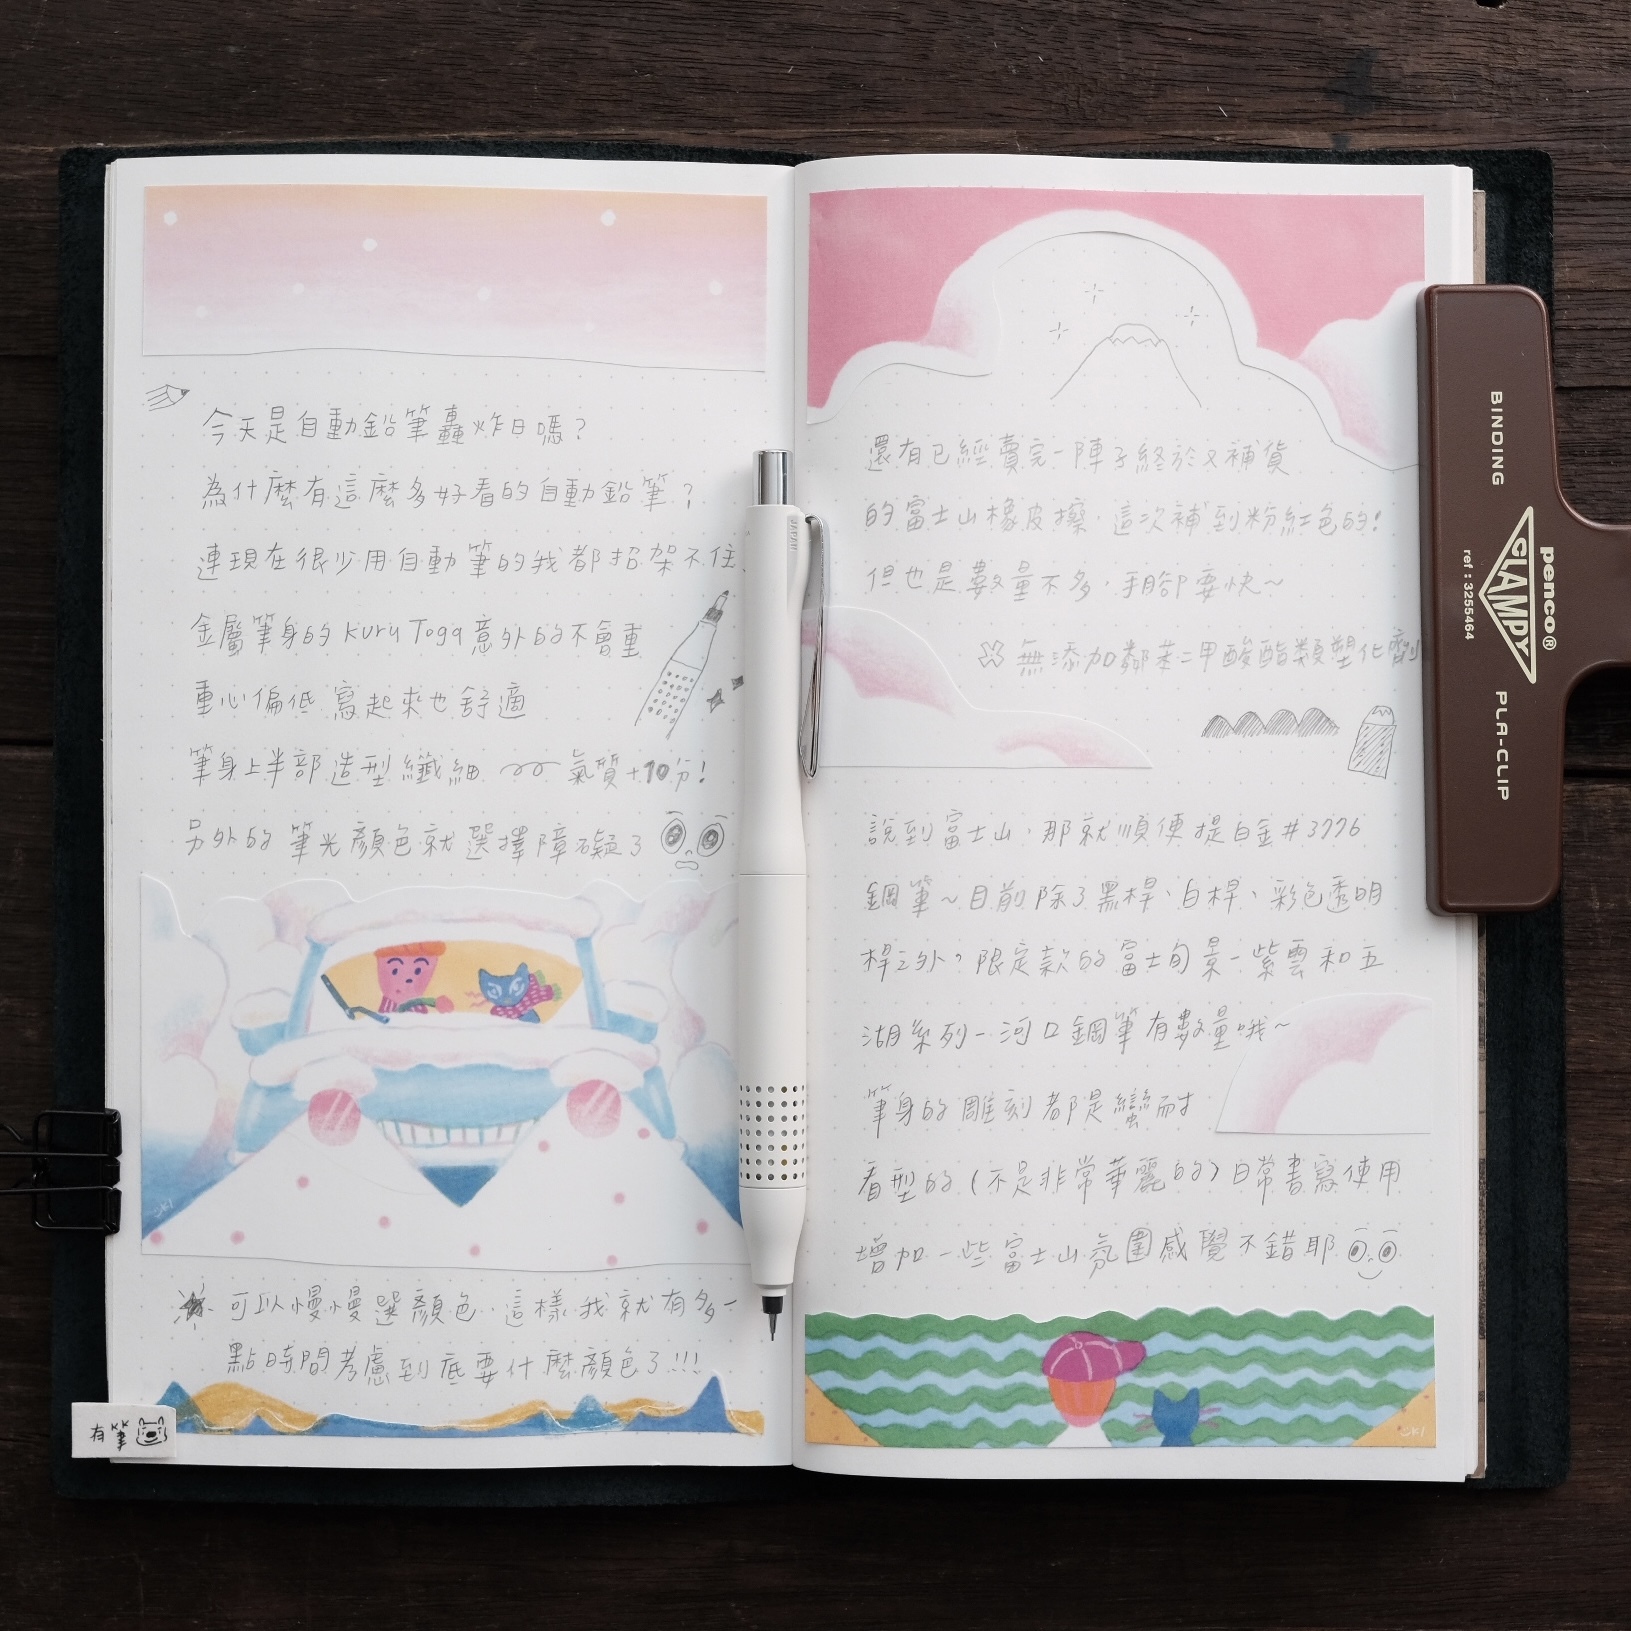 今天是自動鉛筆轟炸日嗎?
為什麼有這麼多好看的自動鉛筆?
連現在很少用自動筆的我都招架不住
金屬筆身的 Kuru Toga 意外的不會重
重心偏低 寫起來也舒適
筆身上半部造型纖細 氣質+10分!
另外的 筆光顏色就 選擇障礙了
可以慢慢選顏色,這樣我就有多一
點時間考慮到底要什麼顏色了!!!
有筆
JAPAN
還有已經賣完一陣子終於又補貨
的富士山橡皮擦,這次補到粉紅色的!
但也是數量不多,手腳要快~
無添加鄰苯二甲酸酯類塑化劑
說到富士山,那就順便提白金#3776
鋼筆~目前除了黑桿、白桿、彩色透明
桿之外,限定款的富士旬景-紫雲和五
湖系列-河口鋼筆有數量哦~
筆身的雕刻都是蠻耐
看型的(不是非常華麗的)日常書寫使用
增加一些富士山氛圍感覺不錯耶
BINDING
penco®
CLAMPY
ref:3255464
PLA-CLIP
SKI
SKI